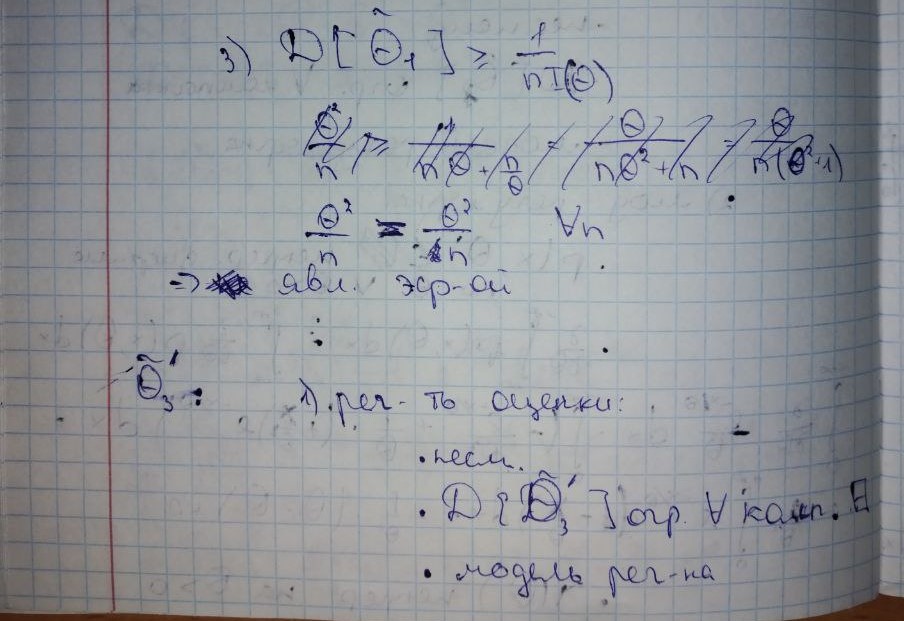 3) D[Θ̃₁] ≥ 1/(nI(Θ))
Θ²/n ≥ 1/(nΘ + n/Θ) = Θ/(nΘ² + n) = Θ/(n(Θ²+1))
Θ²/n = Θ²/n ∀n
=> явл. эф-ой
Θ̃₃': 1) рег-ть оценки:
• несм.
• D[Θ̃₃'] огр. ∀ комп.
• модель рег-на